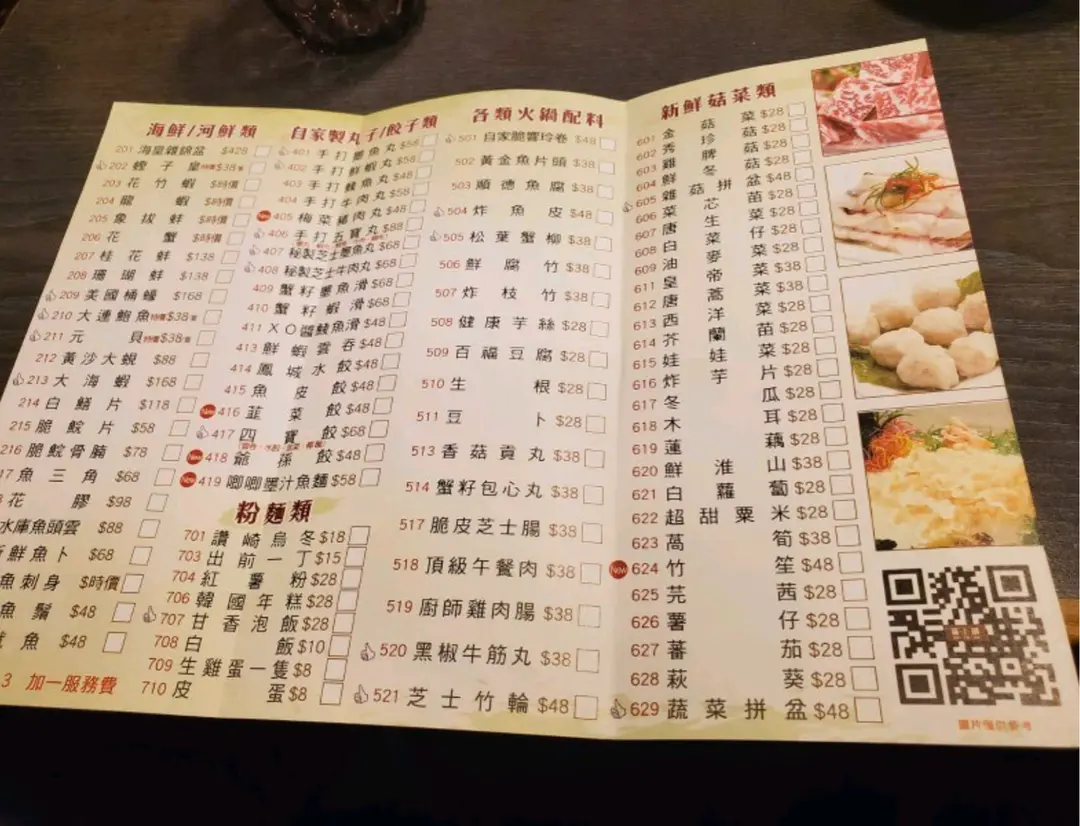 海鮮/河鮮類
201 海皇雜錦盆 $428
202 蟶子皇 特價$38隻
203 花竹蝦 $時價
204 龍蝦 $時價
205 象拔蚌 $時價
206 花蟹 $時價
207 桂花蚌 $138
208 珊瑚蚌 $138
209 美國桶蠔 $168
210 大連鮑魚 特價$38隻
211 元貝 特價$38隻
212 黃沙大蜆 $88
213 大海蝦 $168
214 白鱔片 $118
215 脆鯇片 $58
216 脆鯇骨腩 $78
17 魚三角 $68
花膠 $98
水庫魚頭雲 $88
鮮魚卜 $68
魚刺身 $時價
魚鬚 $48
魚 $48
3 加一服務費
自家製丸子/餃子類
401 手打墨魚丸 $58
402 手打鮮蝦丸 $58
403 手打鯪魚丸 $48
404 手打牛肉丸 $58
New 405 梅菜豬肉丸 $48
406 手打五寶丸 $88
407 秘製芝士墨魚丸 $68
408 秘製芝士牛肉丸 $68
409 蟹籽墨魚滑 $68
410 蟹籽蝦滑 $68
411 XO醬鯪魚滑 $48
413 鮮蝦雲吞 $48
414 鳳城水餃 $48
415 魚皮餃 $48
New 416 韮菜餃 $48
417 四寶餃 $68
New 418 爺孫餃 $48
New 419 唧唧墨汁魚麵 $58
粉麵類
701 讚崎烏冬 $18
703 出前一丁 $15
704 紅薯粉 $28
706 韓國年糕 $28
707 甘香泡飯 $28
708 白飯 $10
709 生雞蛋一隻 $8
710 皮蛋 $8
各類火鍋配料
501 自家脆響玲卷 $48
502 黃金魚片頭 $38
503 順德魚腐 $38
504 炸魚皮 $48
505 松葉蟹柳 $38
506 鮮腐竹 $38
507 炸枝竹 $38
508 健康芋絲 $28
509 百福豆腐 $28
510 生根 $28
511 豆卜 $28
513 香菇貢丸 $38
514 蟹籽包心丸 $38
517 脆皮芝士腸 $38
518 頂級午餐肉 $38
519 廚師雞肉腸 $38
520 黑椒牛筋丸 $38
521 芝士竹輪 $48
新鮮菇菜類
601 金菇菜 $28
602 秀珍菇 $28
603 雞脾菇 $28
604 鮮冬菇 $28
605 雜菇拼盆 $48
606 菜芯苗 $28
607 唐生菜 $28
608 白菜仔 $28
609 油麥菜 $28
611 皇帝菜 $38
612 唐蒿菜 $38
613 西洋菜 $28
614 芥蘭苗 $28
615 娃娃菜 $28
616 炸芋片 $28
617 冬瓜 $28
618 木耳 $28
619 蓮藕 $28
620 鮮淮山 $38
621 白蘿蔔 $28
622 超甜粟米 $28
623 萵筍 $38
New 624 竹笙 $48
625 芫茜 $28
626 薯仔 $28
627 蕃茄 $28
628 萩葵 $28
629 蔬菜拼盆 $48
圖片僅供參考